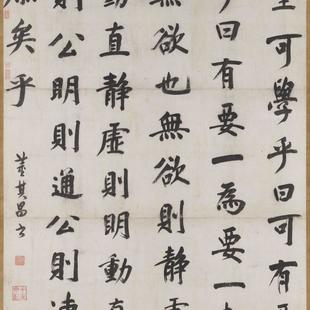 可學乎曰可有
曰有要一為要一
無欲也無欲則靜虛
動直靜虛則明動直
則公明則通公則溥
庶矣乎
董其昌書